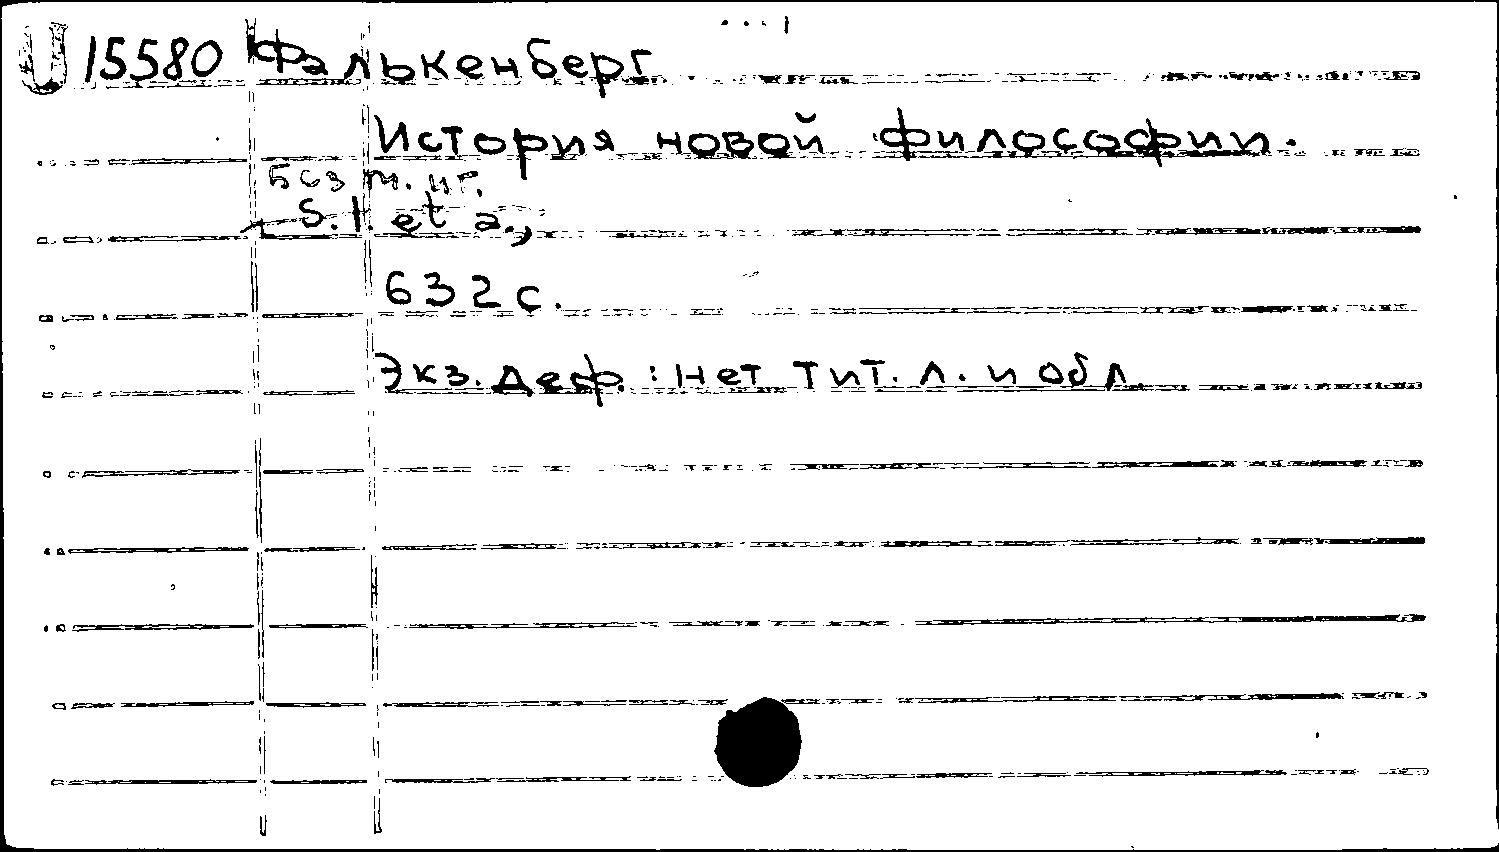 U 15580 Фалькенберг
История новой философии.
Без м. и г.
S. l. et a.,
632 с.
Экз. деф.: Нет тит. л. и обл